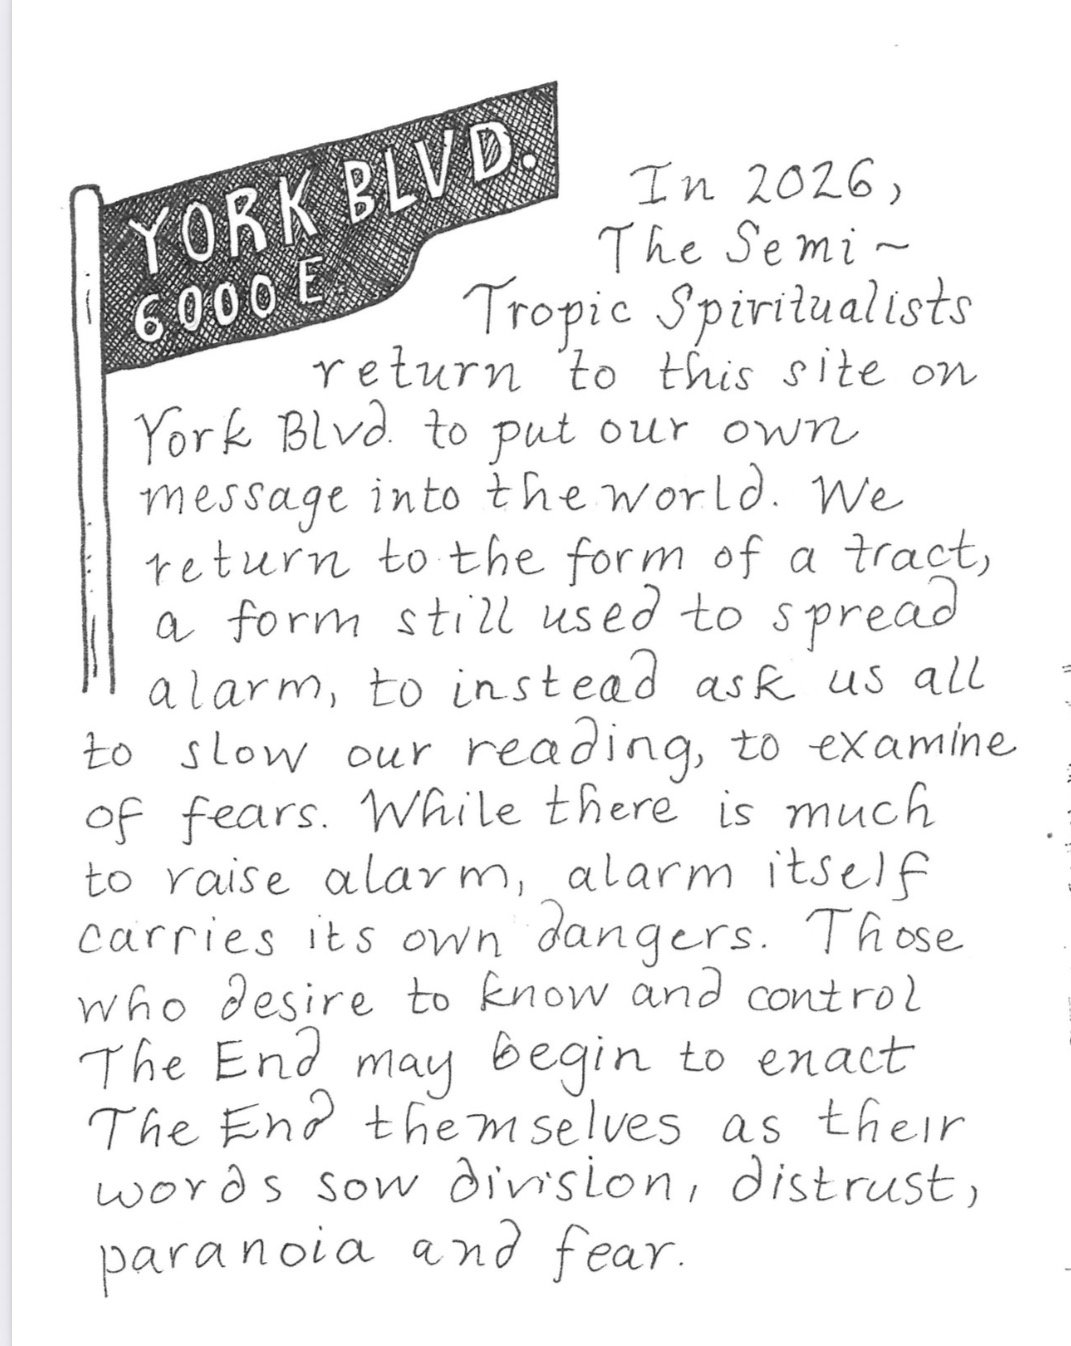 YORK BLVD.
6000 E.
In 2026,
The Semi~
Tropic Spiritualists
return to this site on
York Blvd. to put our own
message into the world. We
return to the form of a tract,
a form still used to spread
alarm, to instead ask us all
to slow our reading, to examine
of fears. While there is much
to raise alarm, alarm itself
carries its own dangers. Those
who desire to know and control
The End may begin to enact
The End themselves as their
words sow division, distrust,
paranoia and fear.